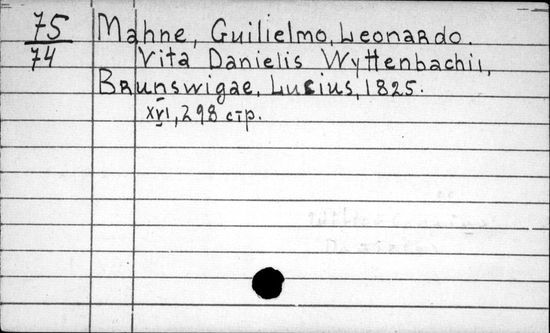 75
74
Mahne, Guilielmo, Leonardo.
Vita Danielis Wyttenbachii,
Brunswigae, Lucius, 1825.
XVI, 298 стр.